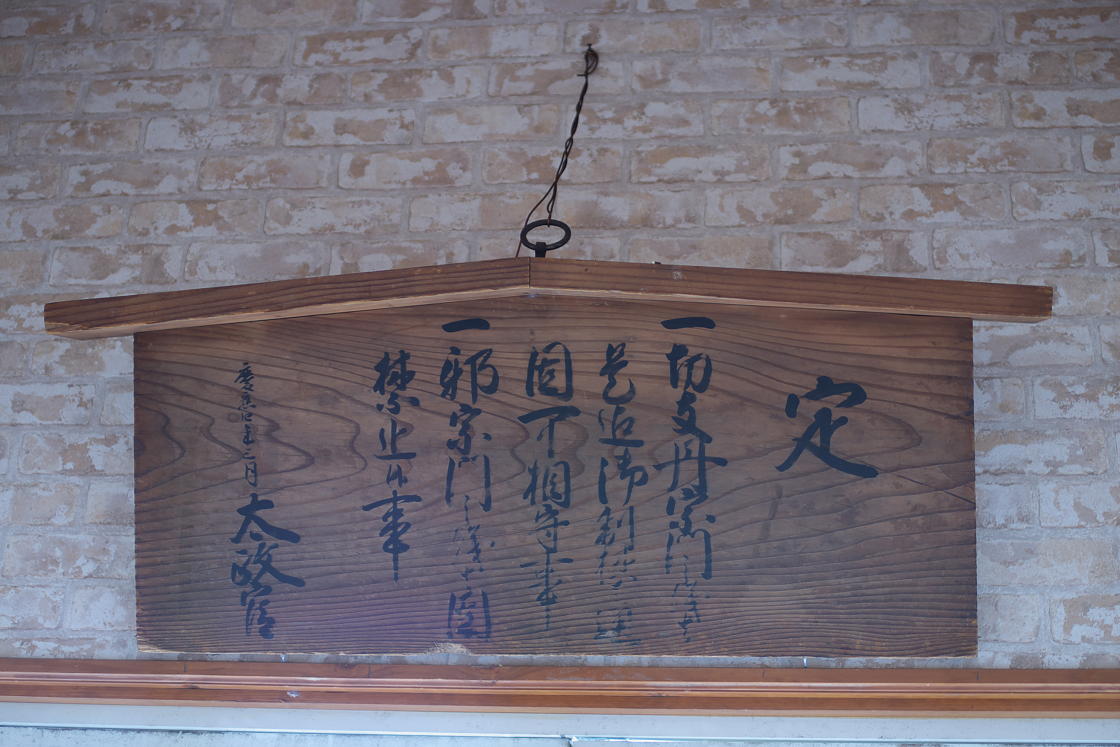 定
一切支丹宗門之儀者
是迄御制禁之通
固可相守事
一邪宗門之儀者固
禁止候事
慶應四年三月 太政官